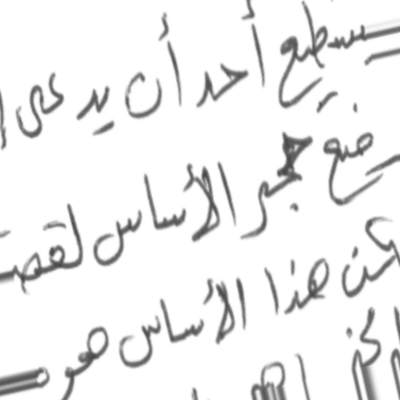 يستطيع أحد أن يدعي
وضع حجر الأساس لقصة
لكن هذا الأساس هو